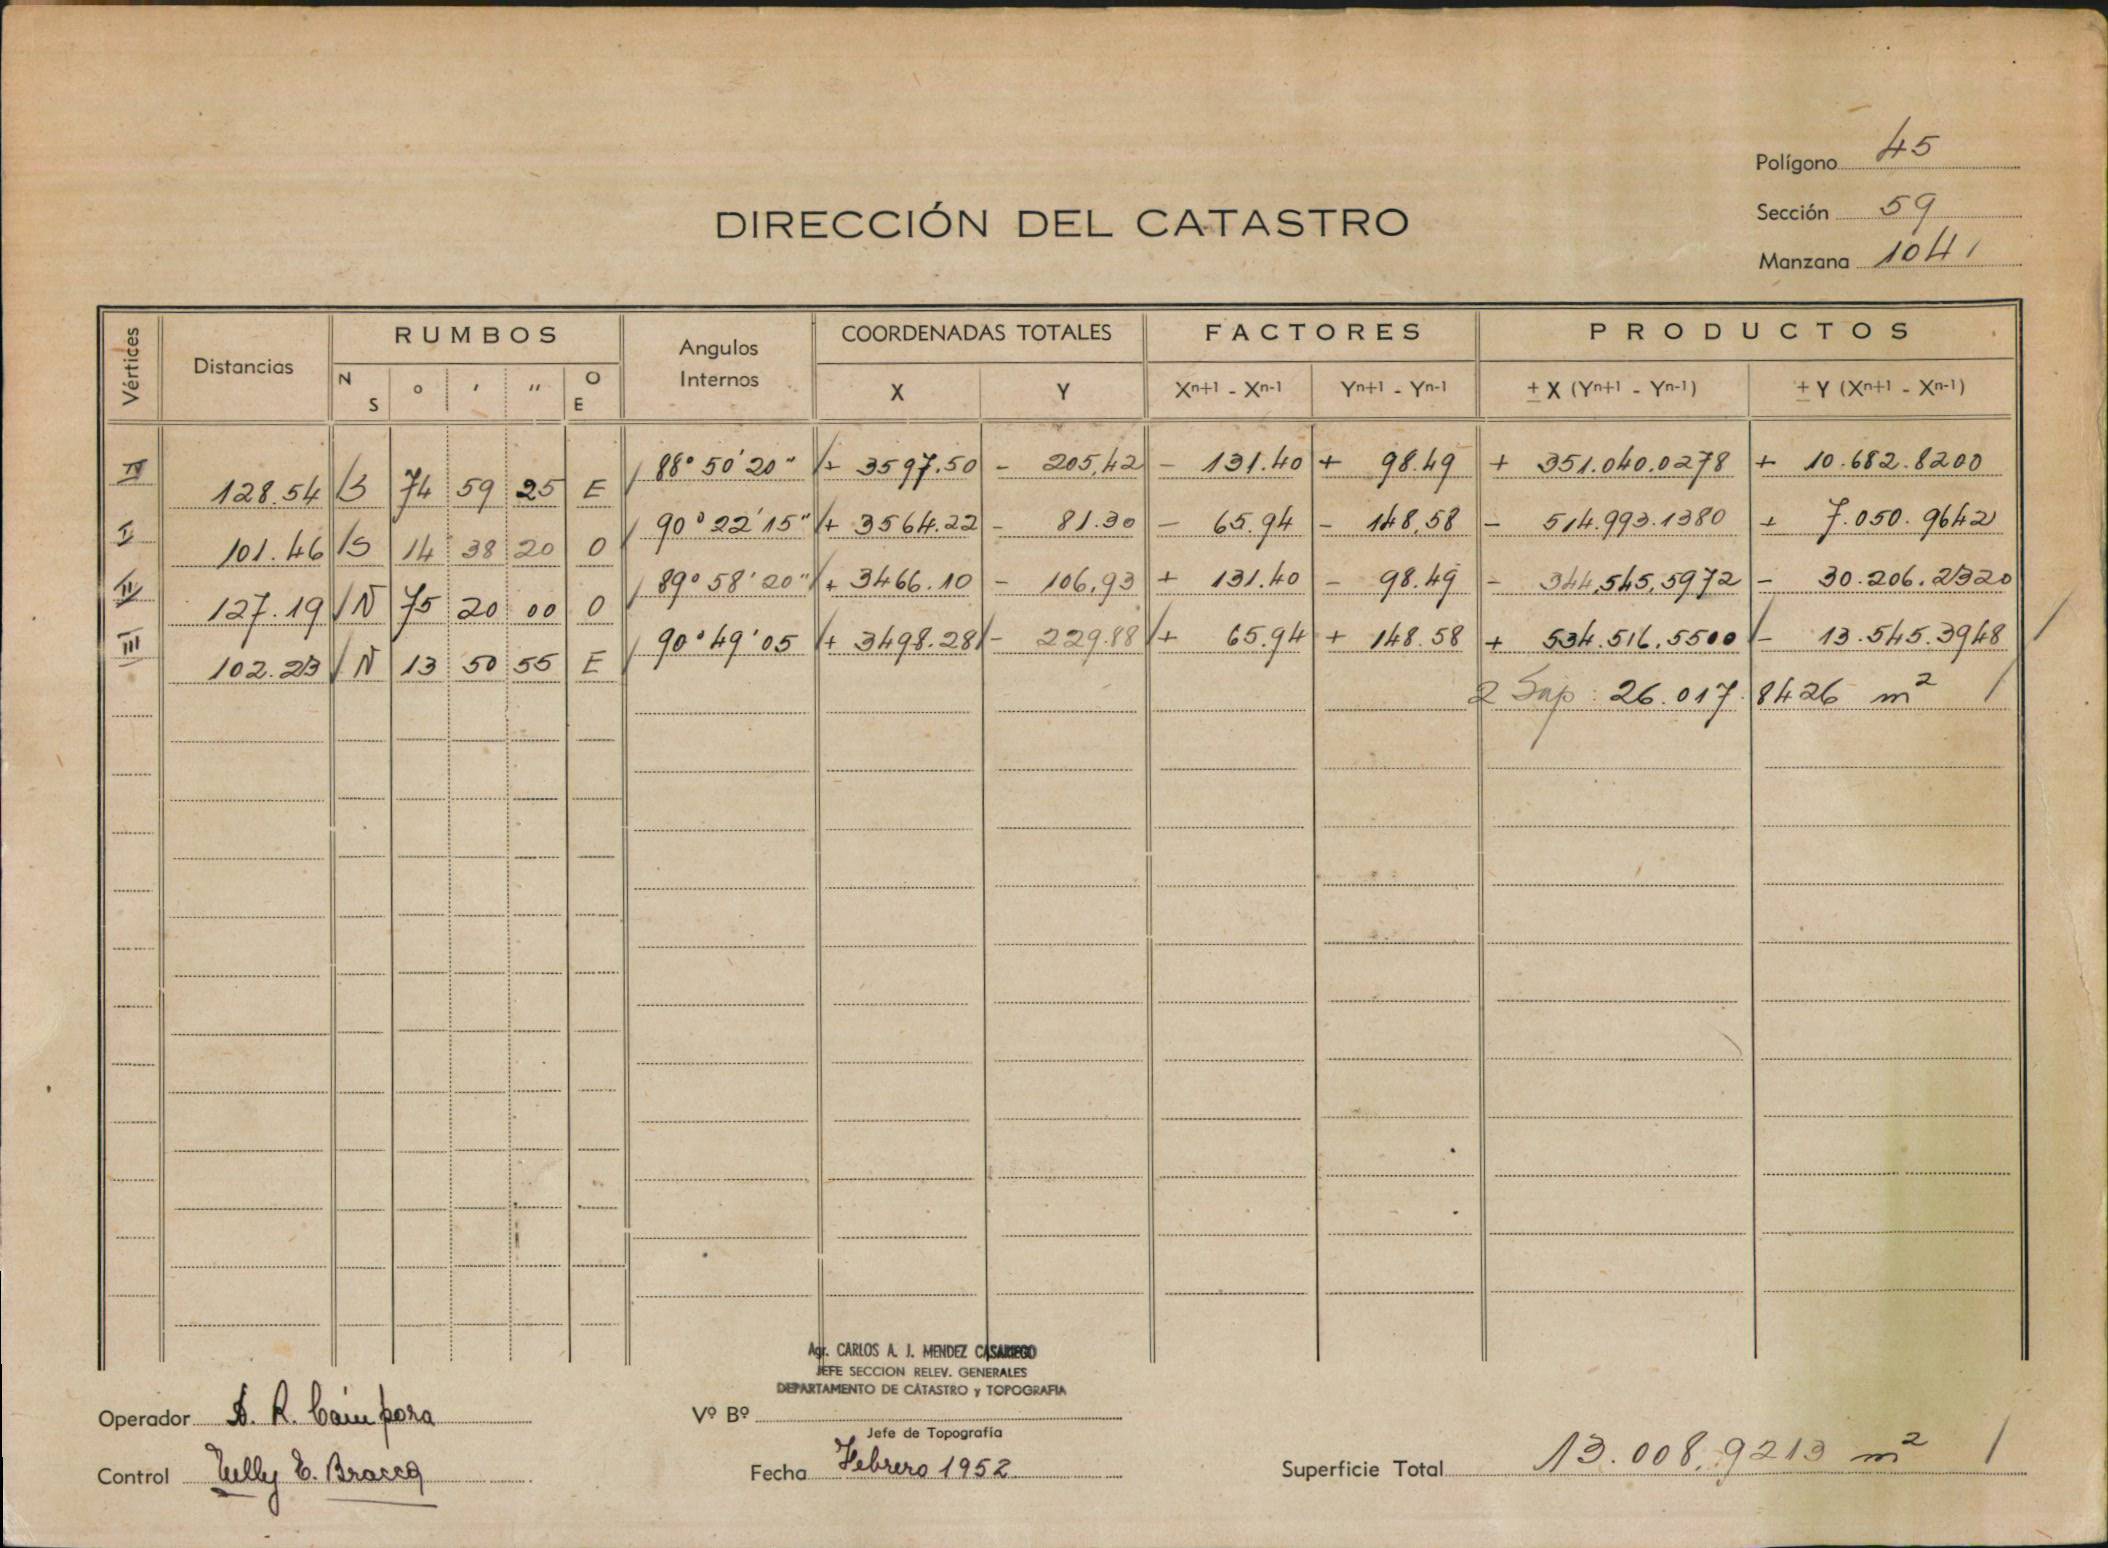 Polígono 45
Sección 59
Manzana 1041
DIRECCIÓN DEL CATASTRO
Vértices Distancias RUMBOS Angulos Internos COORDENADAS TOTALES FACTORES PRODUCTOS
N S ° ' " O E X Y Xn+1 - Xn-1 Yn+1 - Yn-1 ± X (Yn+1 - Yn-1) ± Y (Xn+1 - Xn-1)
IV 88° 50' 20" + 3597.50 - 205,42 - 131.40 + 98.49 + 351.040.0278 + 10.682.8200
128.54 S 74 59 25 E
I 90° 22' 15" + 3564.22 - 81.30 - 65.94 - 148.58 - 514.993.1380 + 7.050.9642
101.46 S 14 38 20 O
II 89° 58' 20" + 3466.10 - 106,93 + 131.40 - 98.49 - 344,545,5972 - 30.206.2320
127.19 N 75 20 00 O
III 90° 49' 05 + 3498.28 - 229.88 + 65.94 + 148.58 + 534.516.5500 - 13.545.3948
102.23 N 13 50 55 E
2 Sup: 26.017.8426 m²
Agr. CARLOS A. J. MENDEZ CASARIEGO
JEFE SECCION RELEV. GENERALES
DEPARTAMENTO DE CATASTRO y TOPOGRAFIA
Operador A. R. Cámpora
Vº Bº
Jefe de Topografía
Control Tully E. Bracco
Fecha Febrero 1952
Superficie Total 13.008,9213 m²